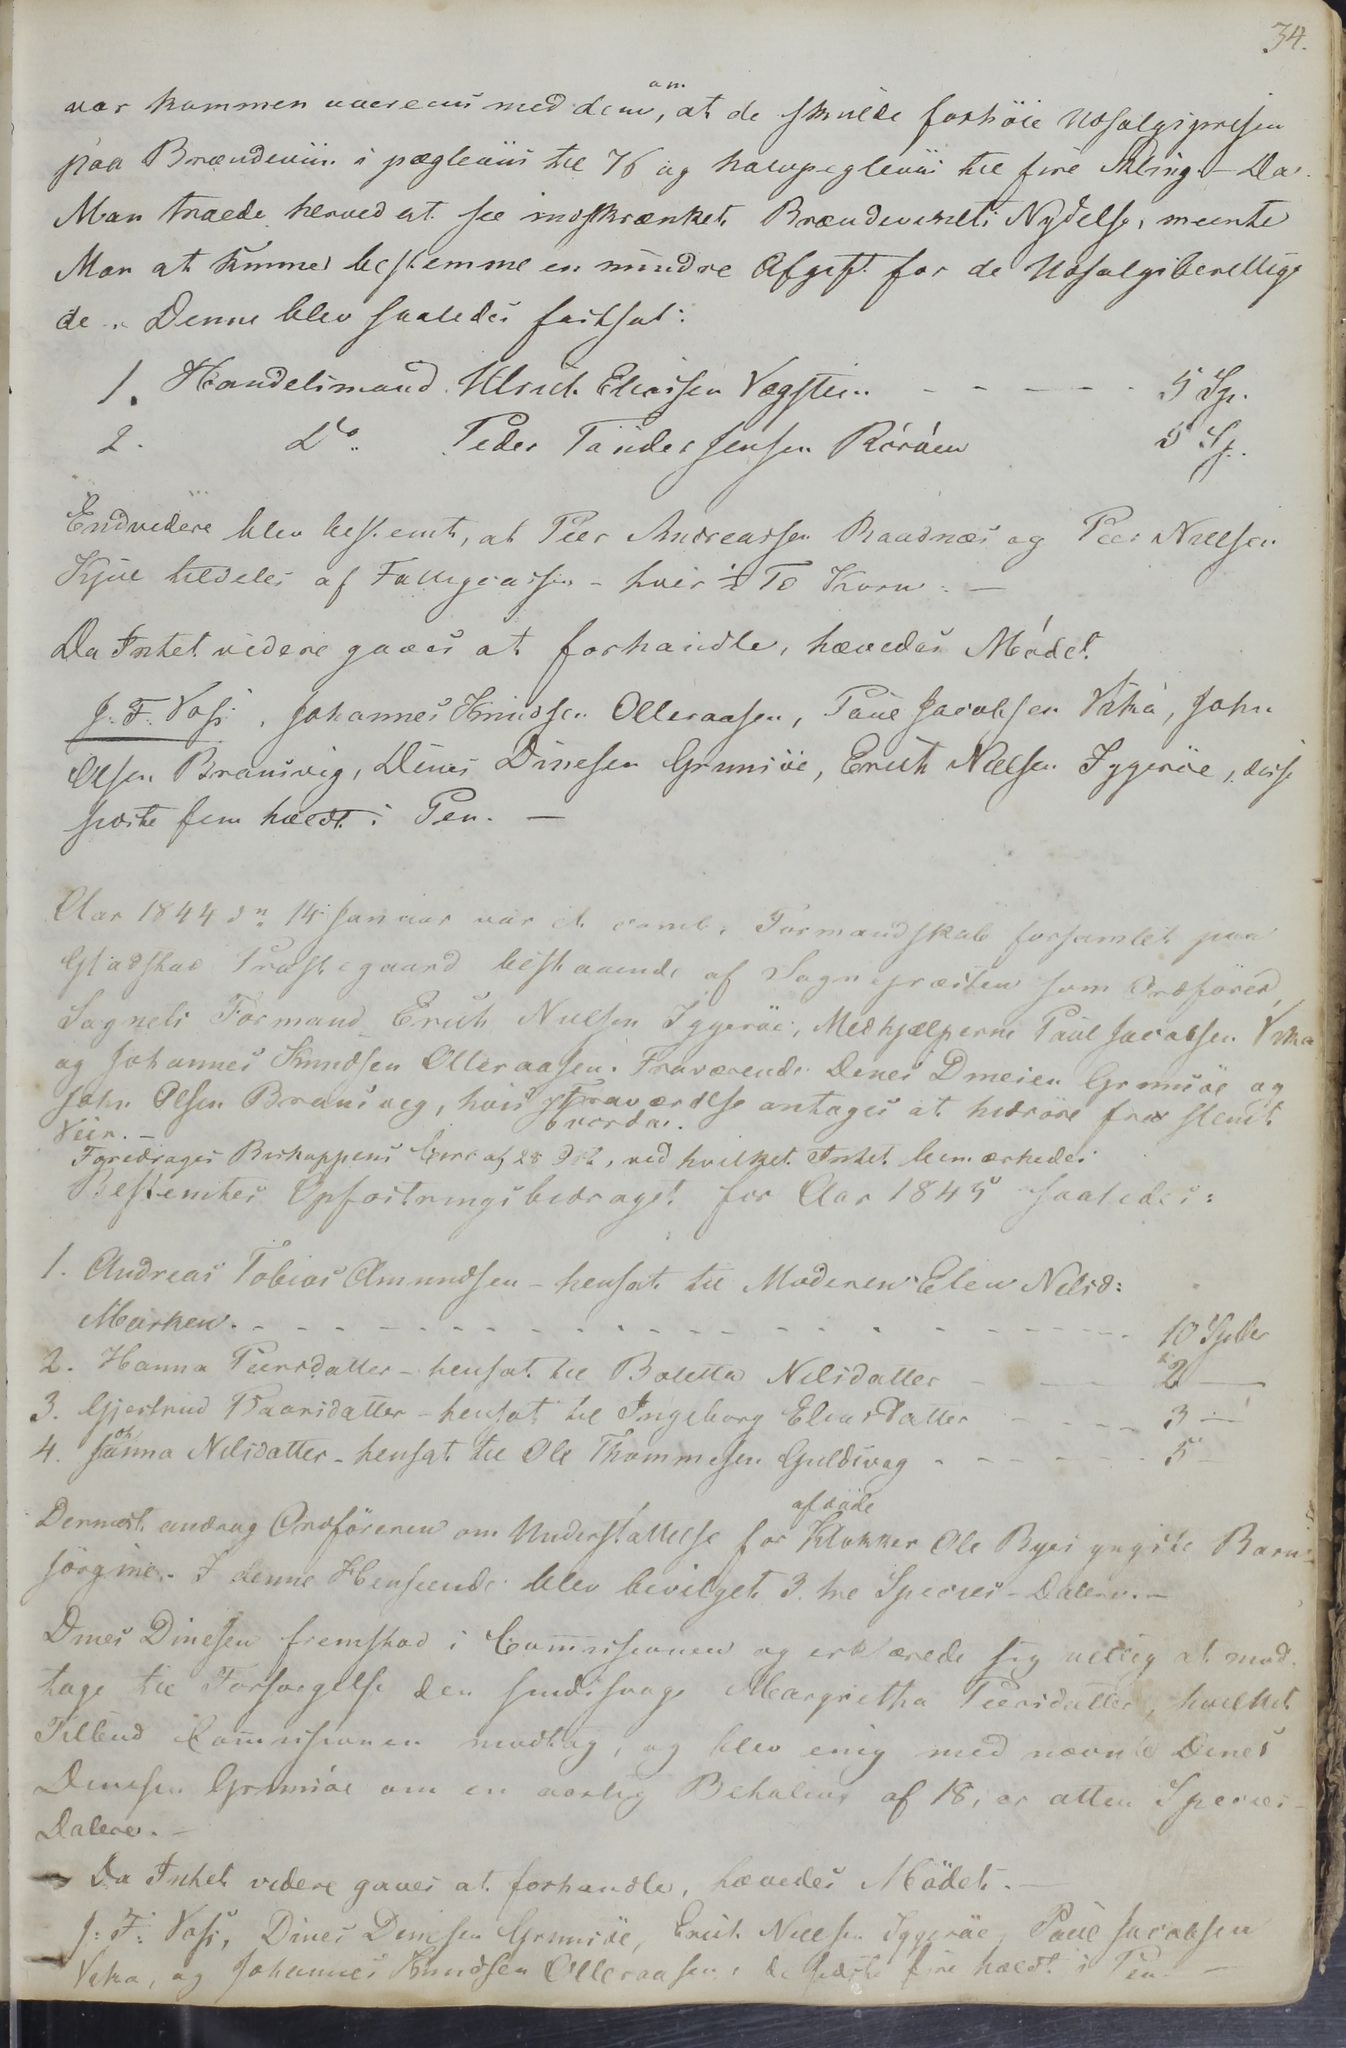 34.
var kommen overeens med dem, om at de skulde forhöie Udsalgsprisen
paa Brændeviin i pægleviis til 7 ß og halvpægleviis til fire Skling. - Da
Man troede herved at see indskrænket Brændevinets Nydelse, meente
Man at kunne bestemme en mindre Afgift for de Udsalgsberettige
de. Denne blev saaledes fastsat:
1. Handelsmand Ulrich Eliassen Vægstein - - - - - 5 Sp.
2. Do. Peder Tönder Jensen Röröen 5 Sp.
Endvidere blev bestemt, at Peer Andreassen Raadnæs og Peer Nielsen
Kjul tildeles af Fattigcassen - hver ½ Td Korn. -
Da Intet videre gaves at forhandle, hævedes Mödet.
J. F. Voss, Johannes Knudsen Olleraasen, Paul Jacobsen Vika, John
Olsen Bransvig, Dines Dinesen Grunsöe, Erich Nielsen Iggeröe, disse
sidste fem holdt i Pen. -
Aar 1844 dn 14 Januar var et comb. Formandskab forsamlet paa
Gladstad Præstegaard bestaaende af Sognepræsten som Ordförer,
Sognets Formand Erich Nielsen Iggeröe, Medhjælperne Paul Jacobsen Vika
og Johannes Knudsen Olleraasen. Fraværende Dines Dinesen Grunsöe og
John Olsen Bransvig, hvis Fraværelse antages at hidröre fra slemt
Veir. -
Foredrages Biskoppens Circ af 28 Oct, ved hvilket Intet bemærkedes
Bestemtes Opfostringsbidraget for Aar 1845 saaledes:
1. Andreas Tobias Amundsen - hensat til Moderen Elen Nilsd:
Marken. - - - - - - - - - - 10 Spdlr
2. Hanna Peersdatter - hensat til Boletta Nilsdatter - - 2 -
3. Gjertrud Baarsdatter - hensat til Ingeborg Eliasdatter - - - 3 -
4. Johanna Nilsdatter - hensat til Ole Thommesen Guldsvag - - - - - 5 -
Dernæst androg Ordföreren om Understöttelse for afdöde Klokker Ole Byes yngste Barn
Jörgine. - I denne Henseende blev bevilget 3. tre Species-Dalere. -
Dines Dinesen fremstod i Commissionen og erklærede sig villig at mod
tage til Forsörgelse den sindssvage Margretha Peersdatter, hvilket
Tilbud Commissionen modtog, og blev enig med nævnte Dines
Dinesen Grunsöe om en aarlig Betaling af 18, er atten Species-
Dalere. -
Da Intet videre gaves at forhandle, hævedes Mödet. -
J. F. Voss, Dines Dinesen Grunsöe, Erich Nielsen Iggeröe, Paul Jacobsen
Vika, og Johannes Knudsen Olleraasen, de sidste fire holdt i Pen. -